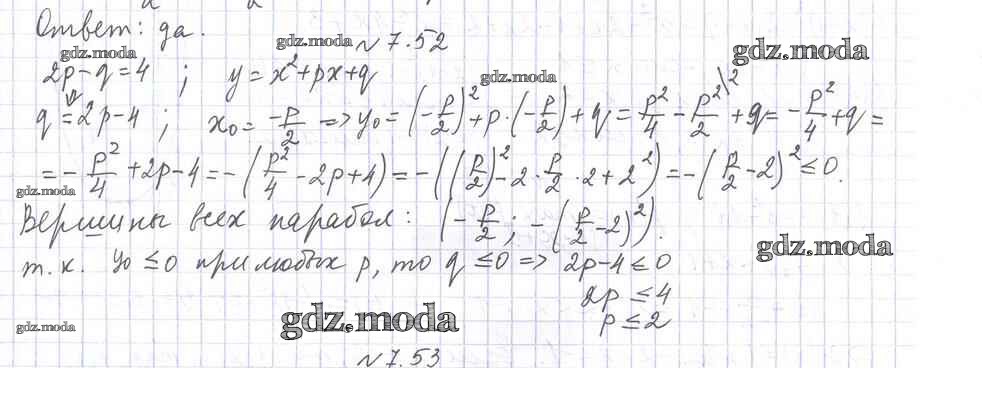 Ответ: да.
gdz.moda gdz.moda № 7.52 gdz.moda
2p-q=4 ; y=x²+px+q gdz.moda
q=2p-4 ; x₀=-p/2 => y₀=(-p/2)²+p·(-p/2)+q=p²/4-p²/2\²+q=-p²/4+q=
=-p²/4+2p-4=-(p²/4-2p+4)=-((p/2)²-2·p/2·2+2²)=-(p/2-2)²≤0.
gdz.moda
Вершины всех парабол: (-p/2; -(p/2-2)²).
gdz.moda
т.к. y₀≤0 при любых p, то q≤0 => 2p-4≤0
2p≤4
gdz.moda gdz.moda p≤2
№ 7.53